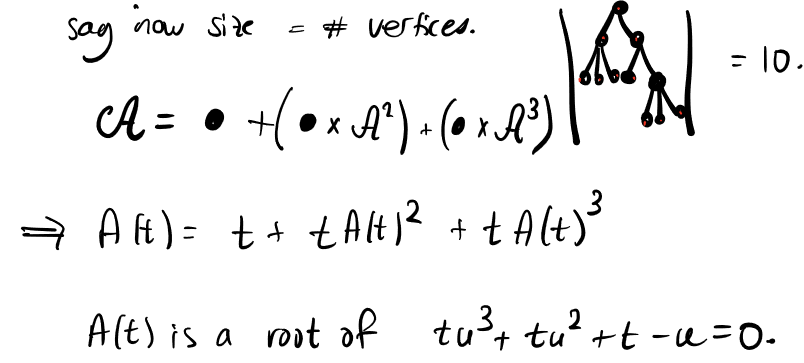 say now size = # vertices.
| | = 10.
𝒜 = • + (• × 𝒜²) + (• × 𝒜³)
⟹ A(t) = t + t A(t)² + t A(t)³
A(t) is a root of tu³ + tu² + t - u = 0.